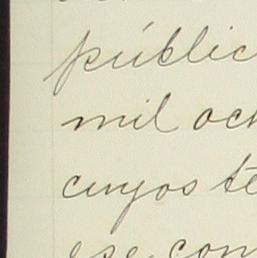 públic
mil och
cuyos te
ese con